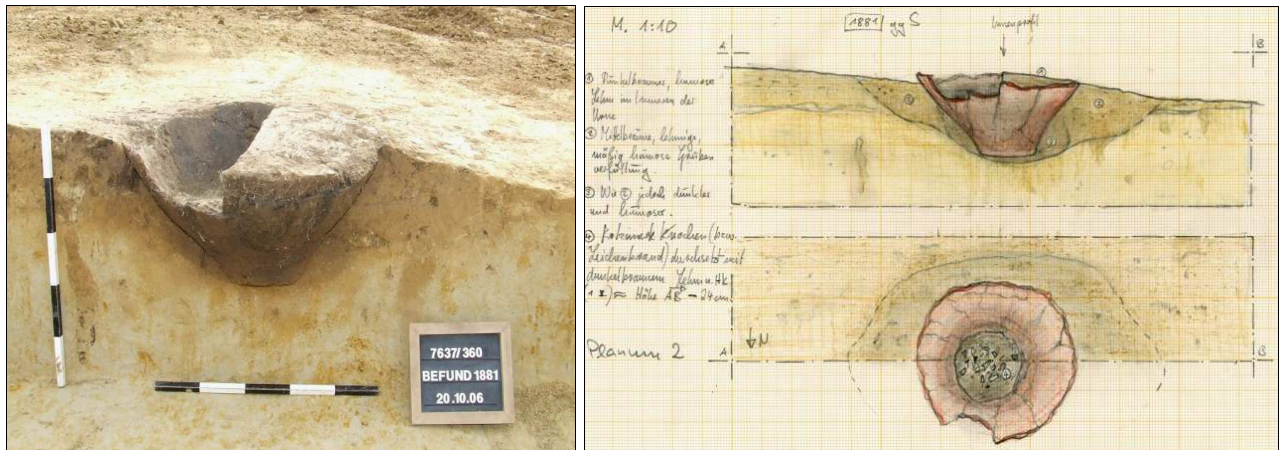 7637/360
BEFUND 1881
20.10.06
M. 1:10
1881 gg S
Innenprofil
A
B
① Dunkelbrauner, humoser
Lehm im Inneren der
Urne
② Mittelbraune, lehmige,
mäßig humose Gruben
verfüllung.
③ Wie ② jedoch dunkler
und humoser.
④ Knochen
Leichenbrand) durchsetzt mit
dunkelbraunem Lehm u. Hk
Höhe AB - 24 cm
Planum 2
A
N
B